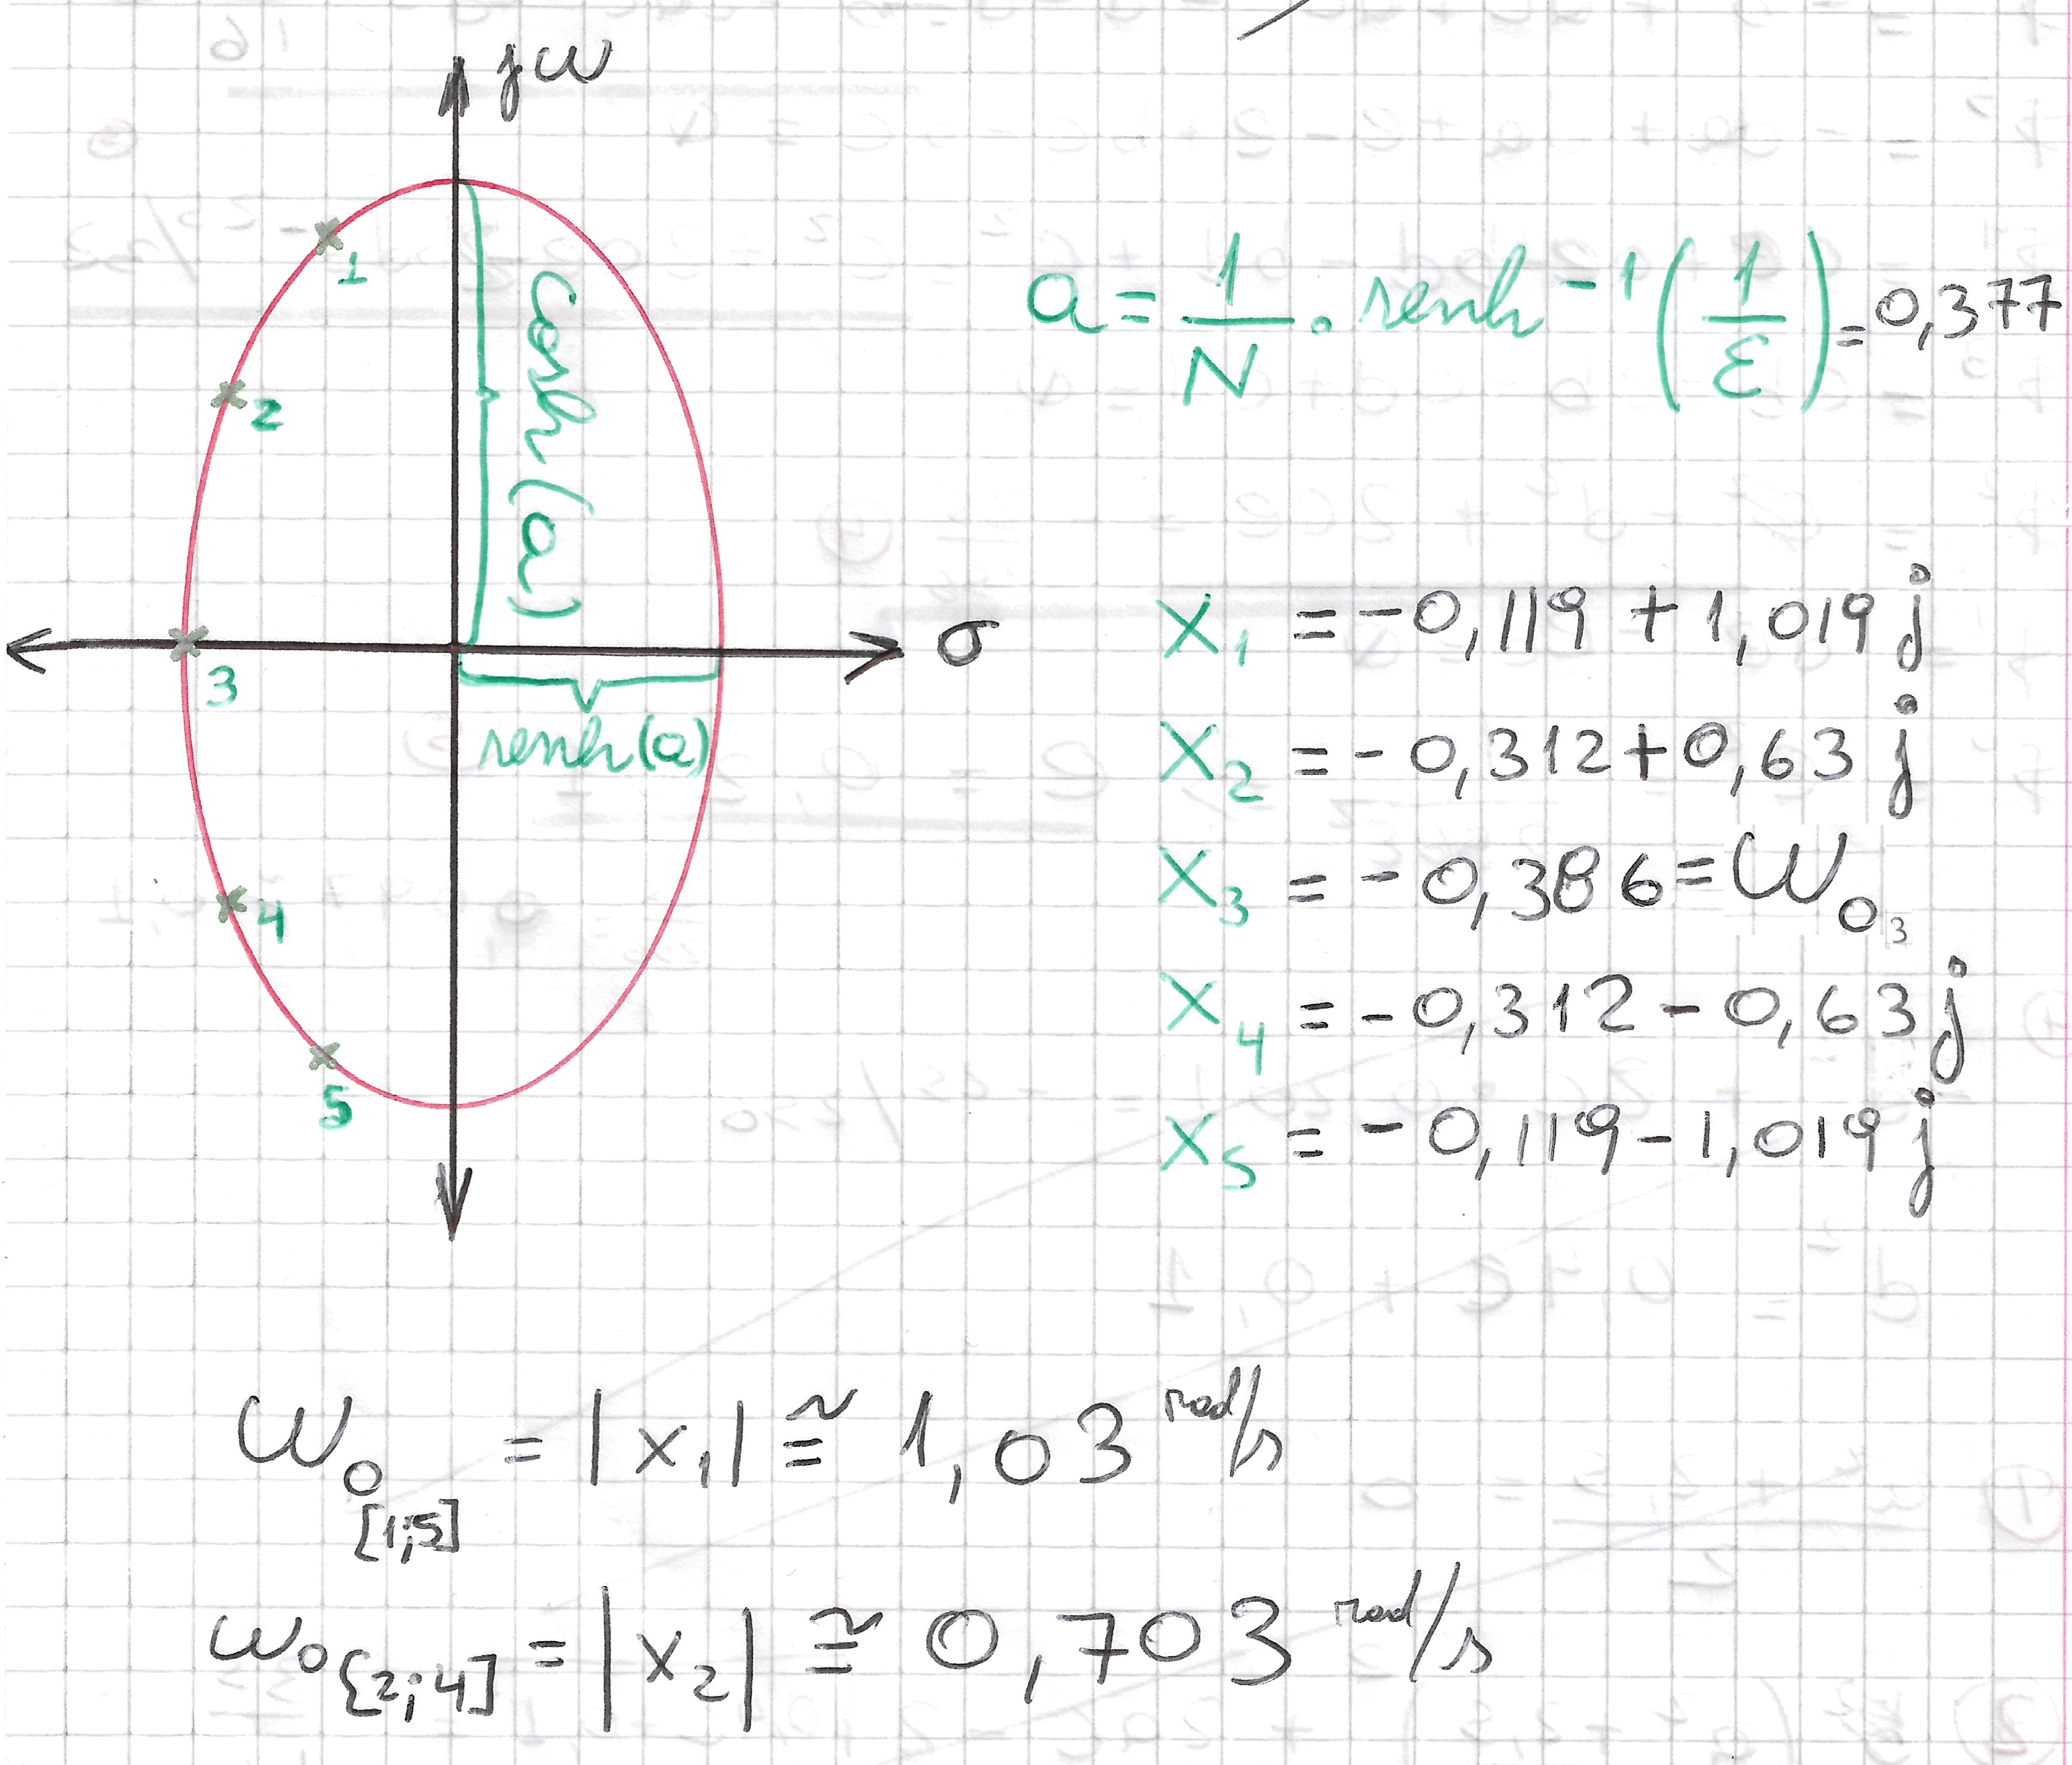 jω
1
2
3
4
5
cosh(a)
senh(a)
σ
a = 1/N · senh⁻¹(1/ε) = 0,377
X₁ = -0,119 + 1,019 j
X₂ = -0,312 + 0,63 j
X₃ = -0,386 = ω₀₃
X₄ = -0,312 - 0,63 j
X₅ = -0,119 - 1,019 j
ω₀[1;5] = |X₁| ≅ 1,03 rad/s
ω₀[2;4] = |X₂| ≅ 0,703 rad/s